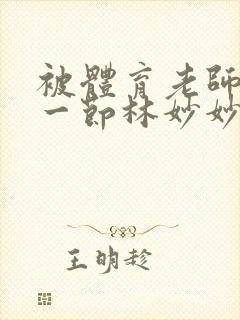 被體育老師
一節林妙妙
王明趁